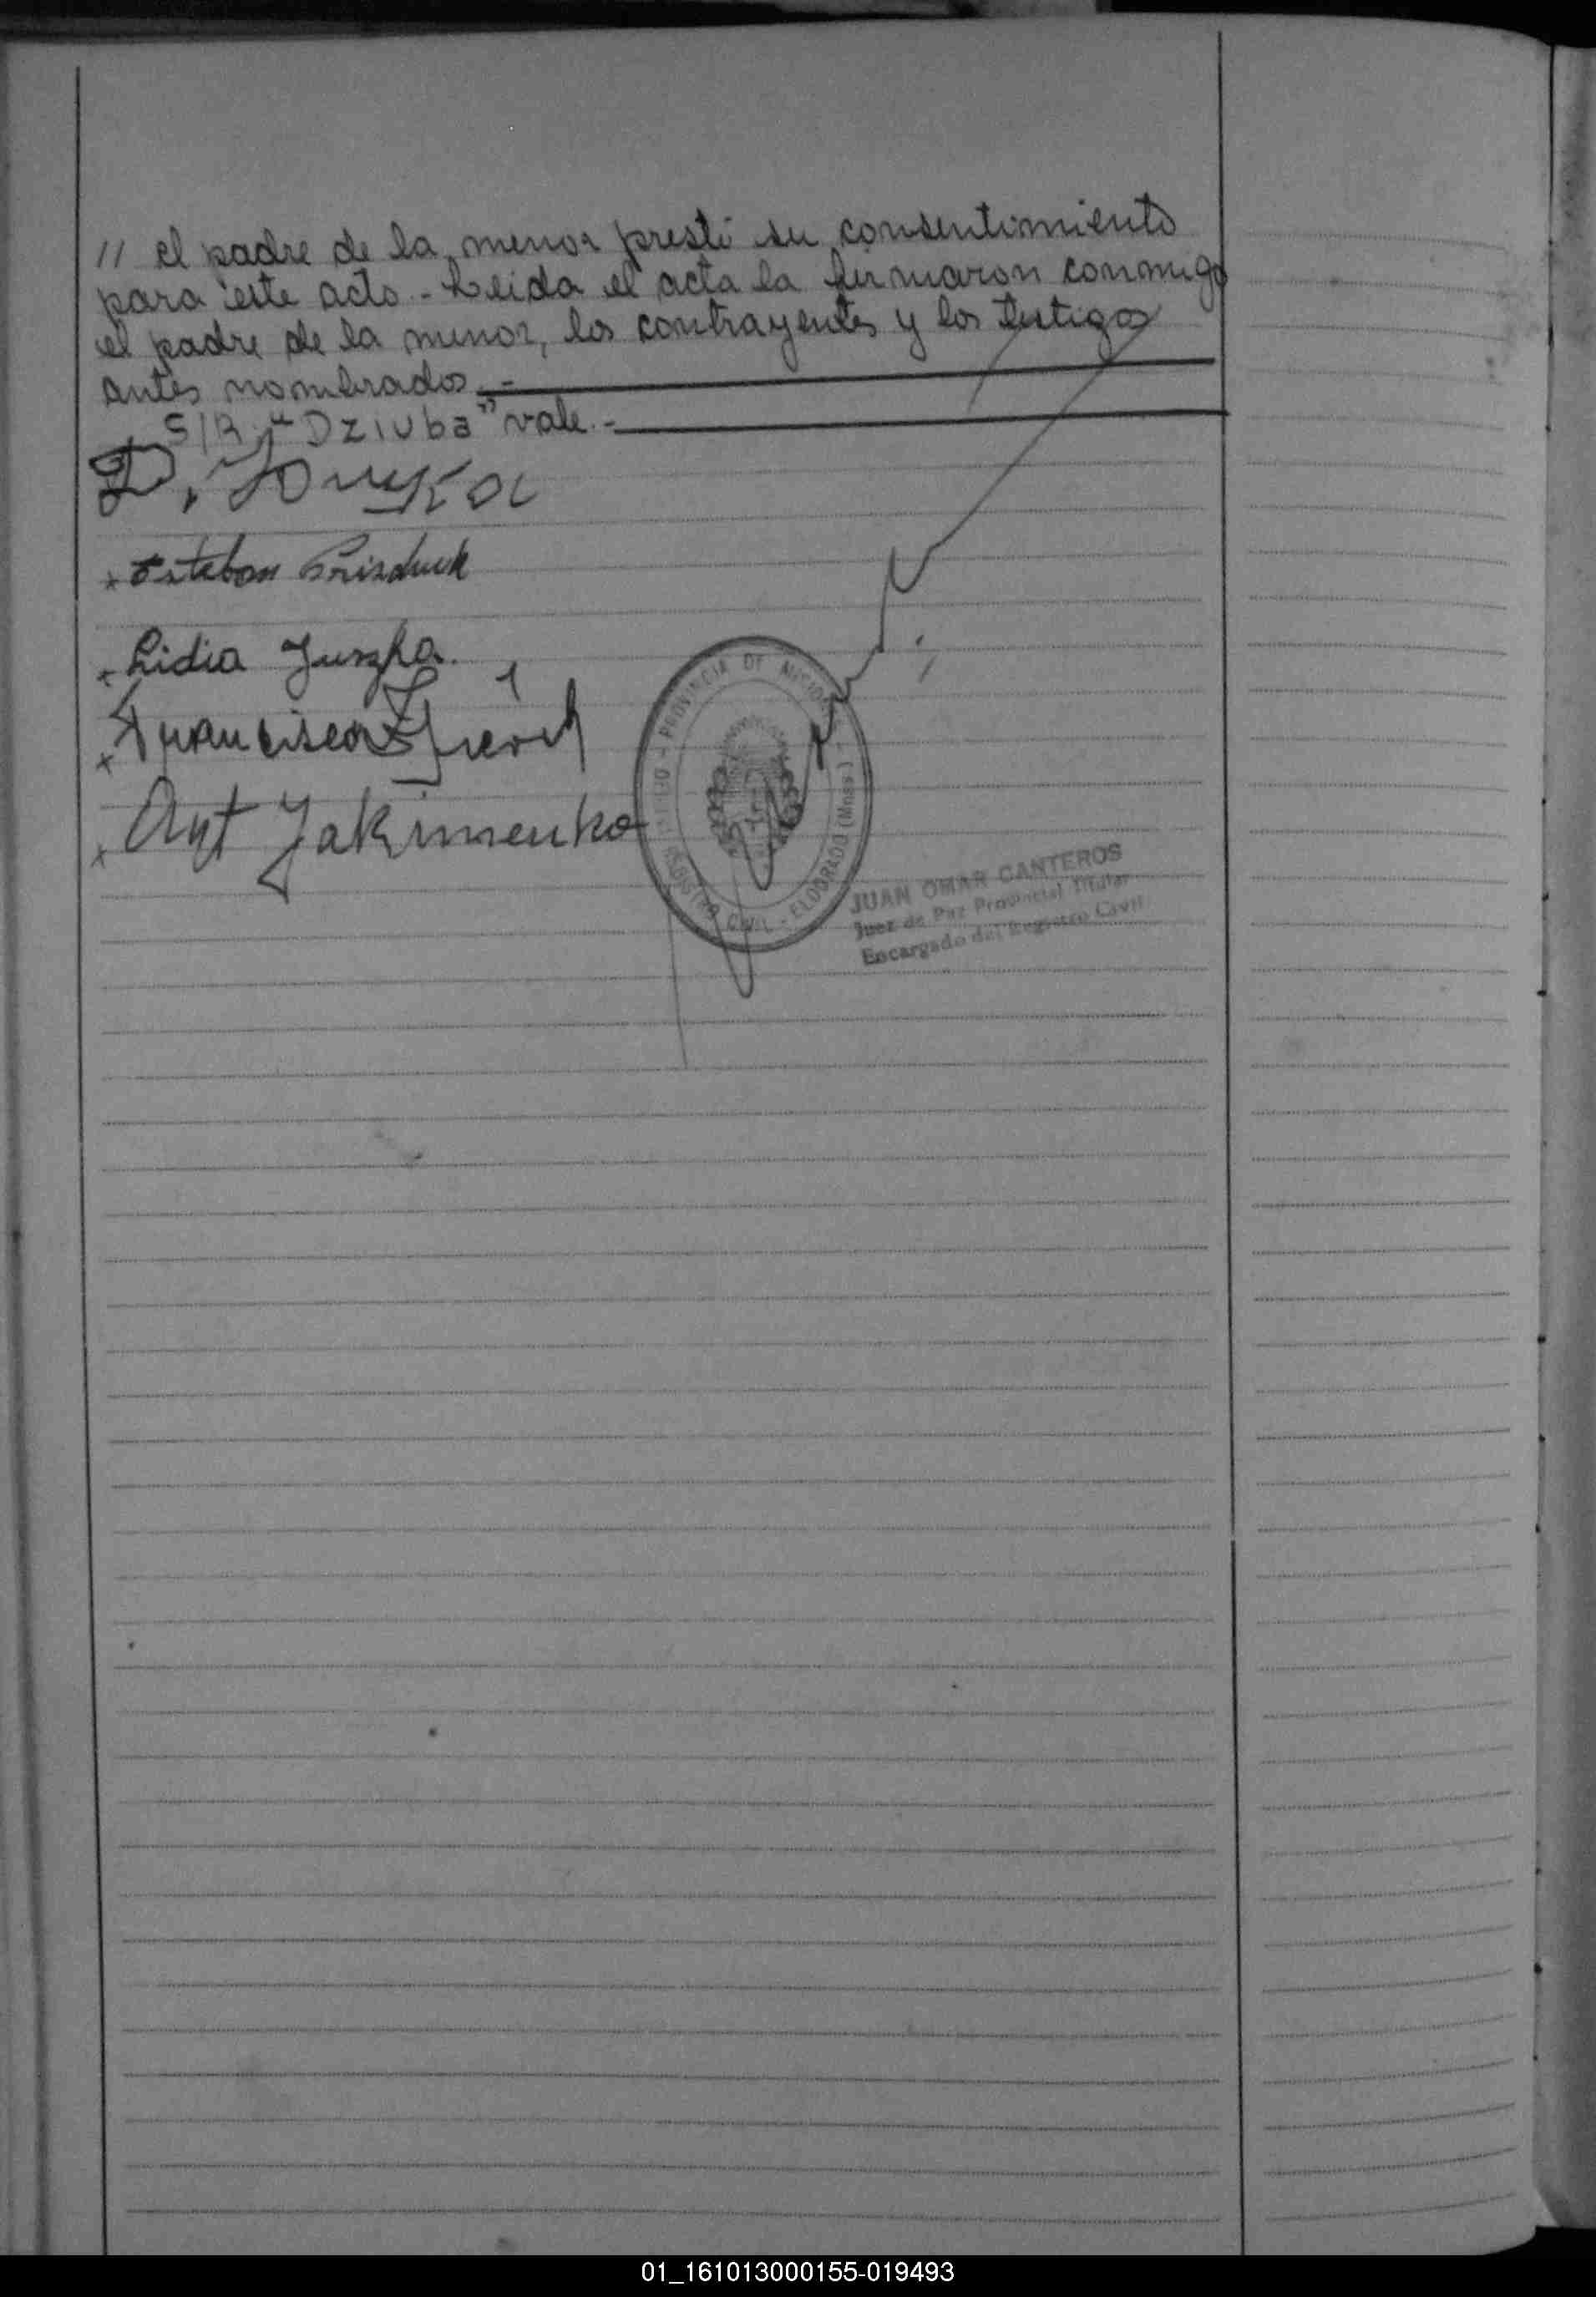 // el padre de la menor prestó su consentimiento
para este acto.- Leida el acta la firmaron conmigo
el padre de la menor, los contrayentes y los testigos
antes nombrados.-
S/R "Dziuba" vale.-
Esteban
Lidia Juszka.
Francisco
Ant Jakimenko
PROVINCIA DE MISIONES
REGISTRO CIVIL - ELDORADO (Mnes.)
JUAN OMAR CANTEROS
Juez de Paz Provincial Titular
Encargado del Registro Civil
01_161013000155-019493